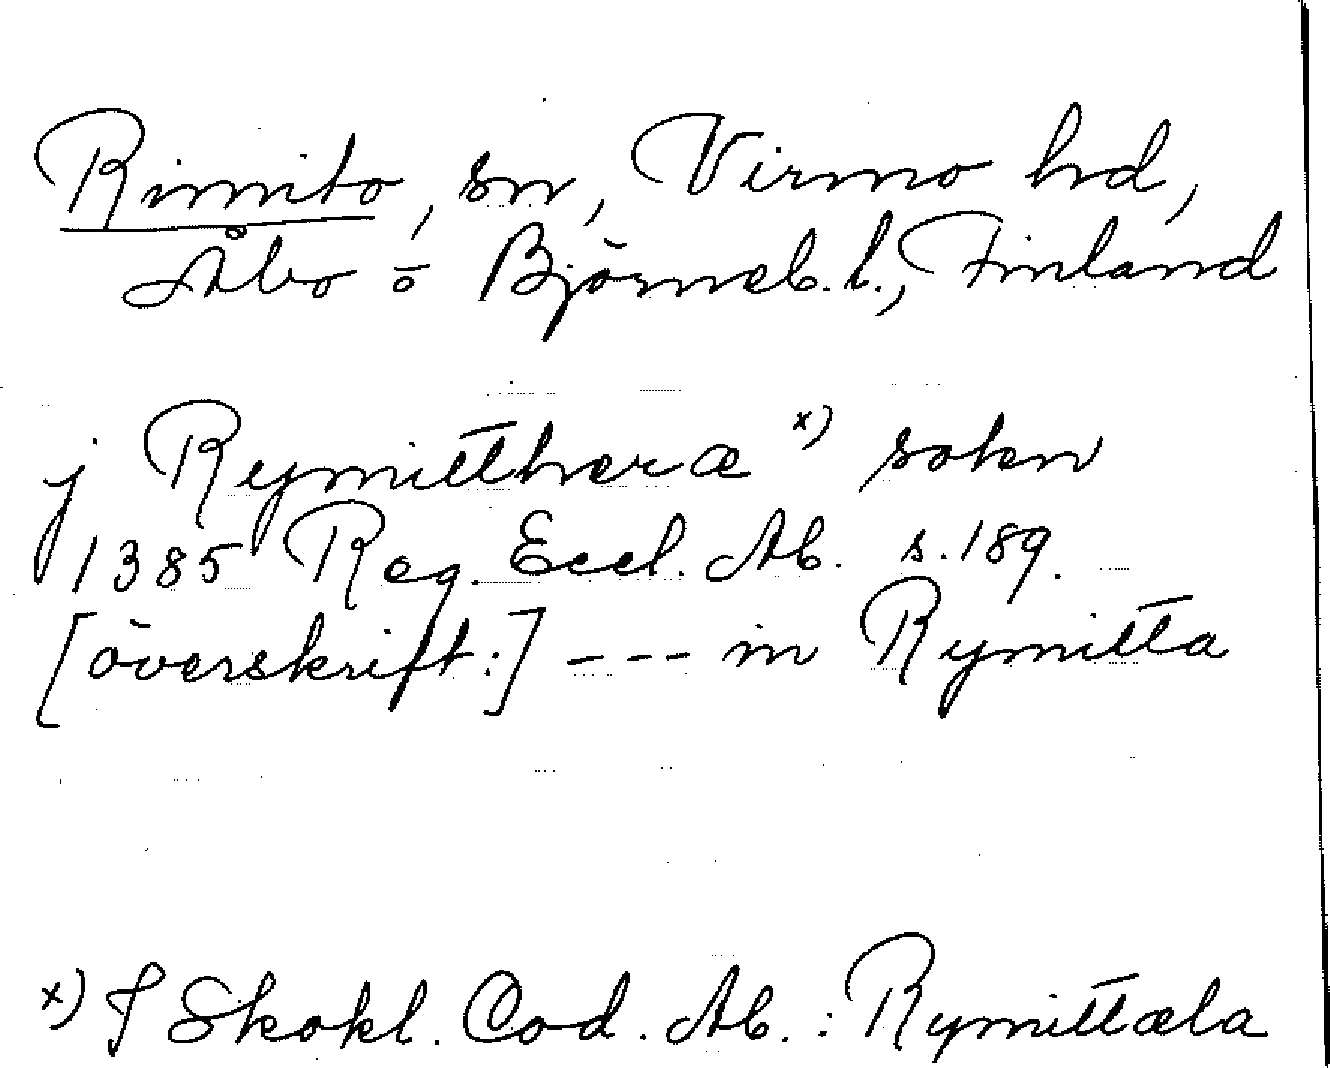 Rimito, sn, Virmo hd,
Åbo o Björneb.l., Finland
j Rymittheræ x) sokn
1385 Reg. Eccl. Ab. s. 189.
[överskrift:] --- in Rymitta
x) I Skokl. Cod. Ab. : Rymittæla